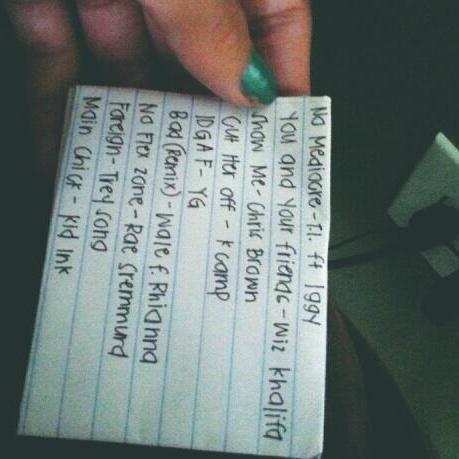 No Mediocre - T.I. ft Iggy
You and Your friends - Wiz Khalifa
Show Me - Chris Brown
Cut Her off - K camp
IDGAF - YG
Bad (Remix) - Wale f. Rhianna
No Flex Zone - Rae Sremmurd
Foreign - Trey Song
Main Chick - Kid Ink